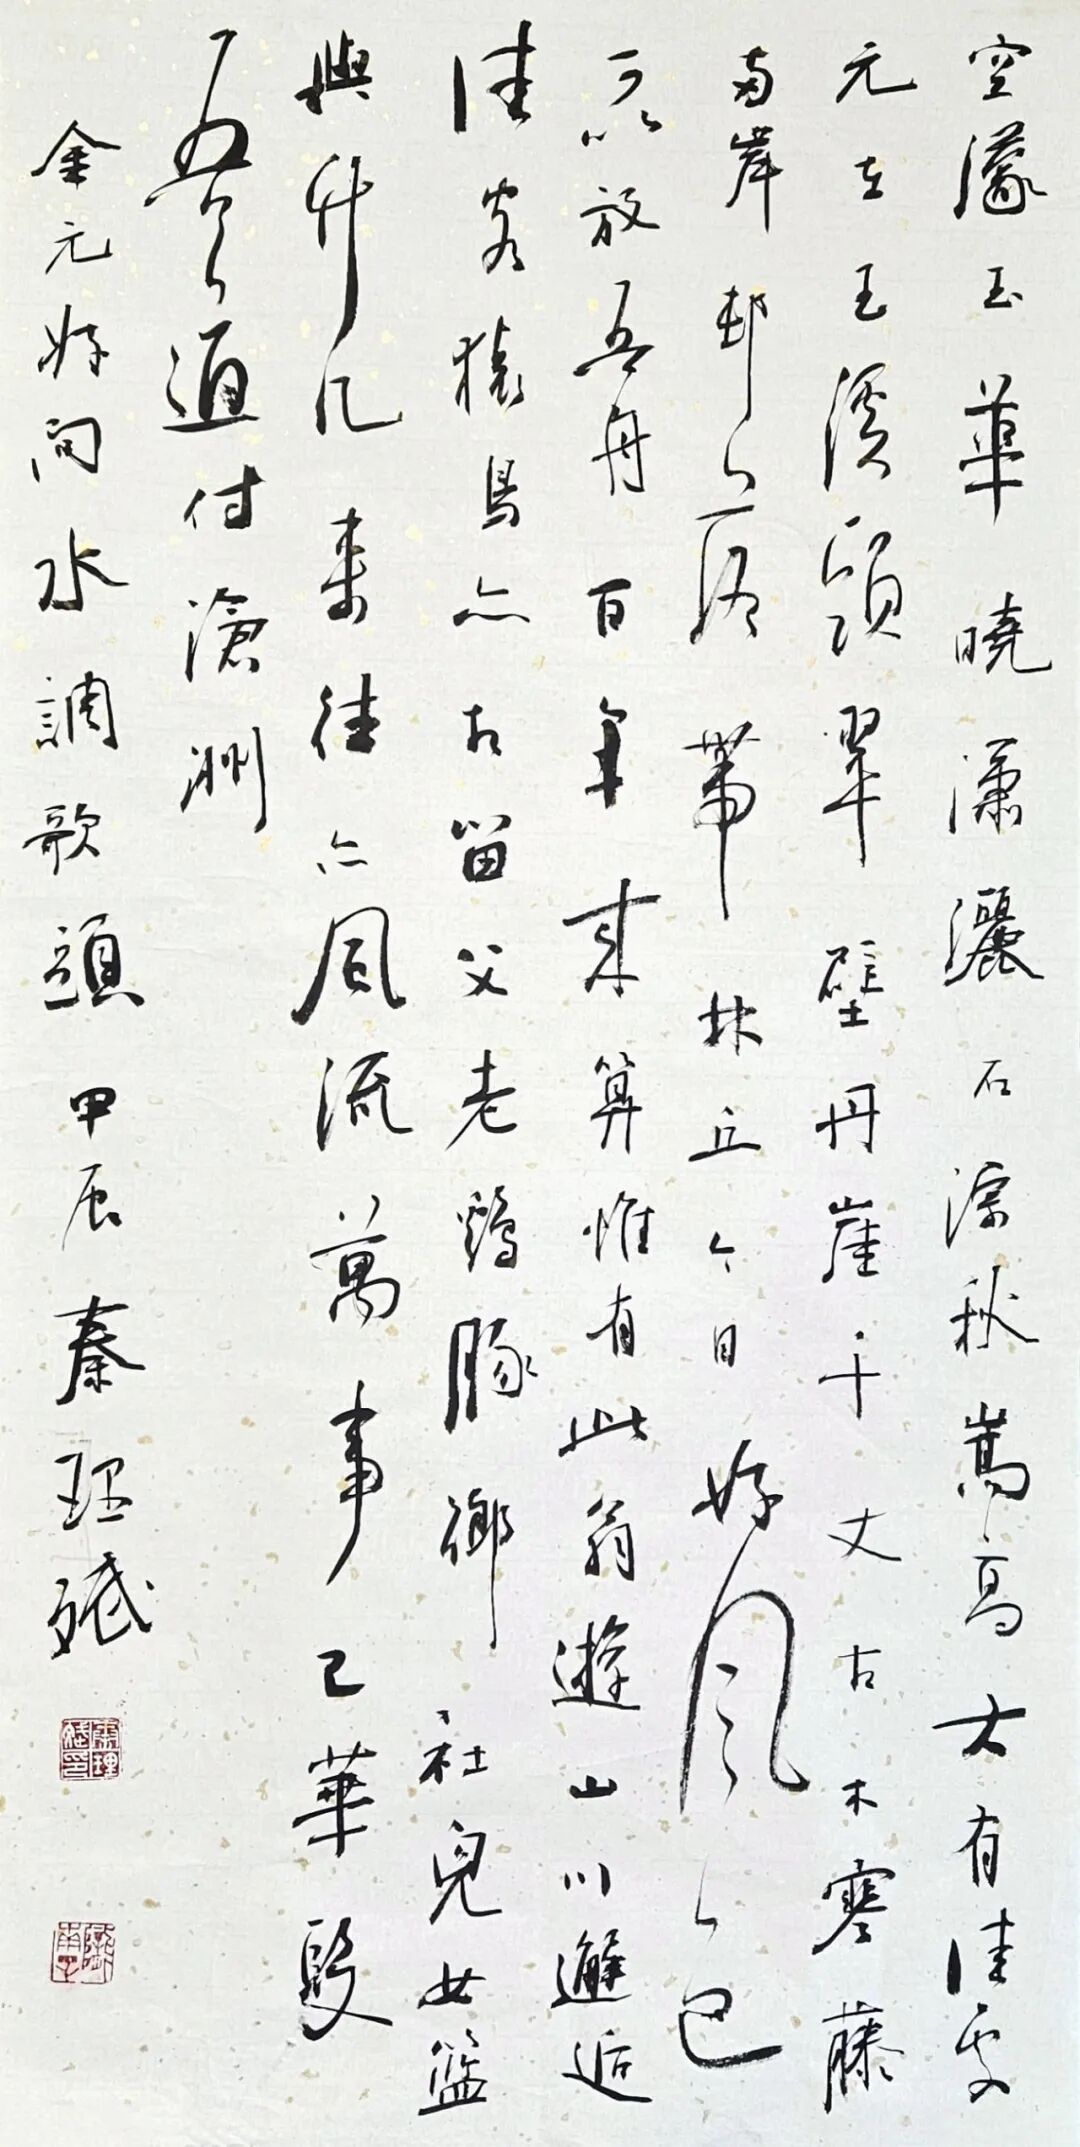 空濛玉華曉潇灑石淙秋嵩高大有佳處
元在玉溪頭翠壁丹崖千丈古木寒藤
兩岸邨落帶林丘今日好風色
可以放吾舟百年來算惟有此翁遊山川邂逅
佳客猿鳥亦相留父老鷄豚鄉社兒女籃
輿竹几來往亦風流萬事已華髮
吾道付滄洲
金元好问水調歌頭 甲辰 秦理斌
秦理斌印